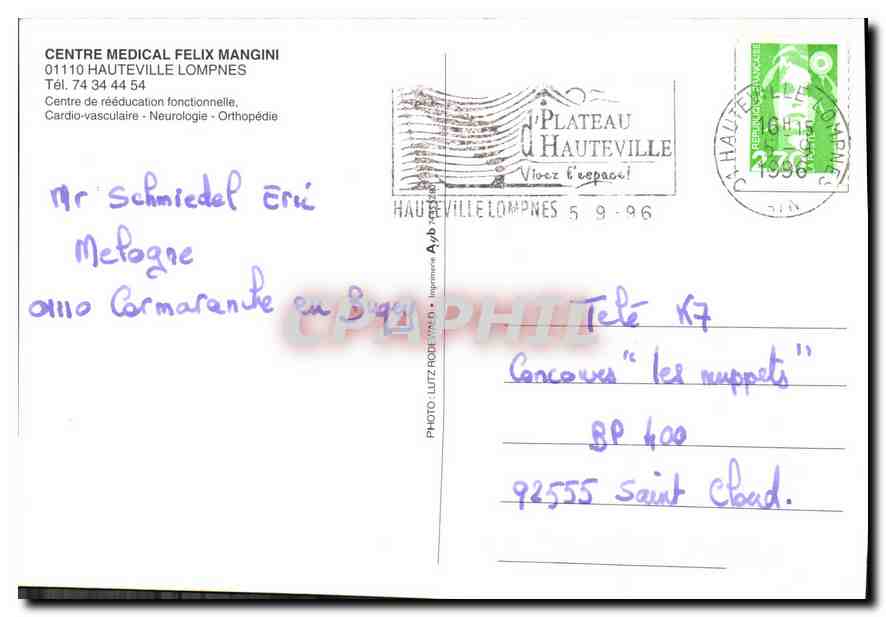 CENTRE MEDICAL FELIX MANGINI
01110 HAUTEVILLE LOMPNES
Tél. 74 34 44 54
Centre de rééducation fonctionnelle,
Cardio-vasculaire - Neurologie - Orthopédie
Mr Schmiedel Eric
Metogne
01110 Cormaranche en Bugey
PLATEAU
d'HAUTEVILLE
Vivez l'espace!
HAUTEVILLE LOMPNES 5 9 - 96
RÉPUBLIQUE FRANÇAISE
HAUTEVILLE LOMPNES
16H15
1996
AIN
PHOTO : LUTZ RODEWALD • Imprimerie Ayb
CPAPHIL
Télé K7
Concours "les muppets"
BP 400
92555 Saint Cloud.